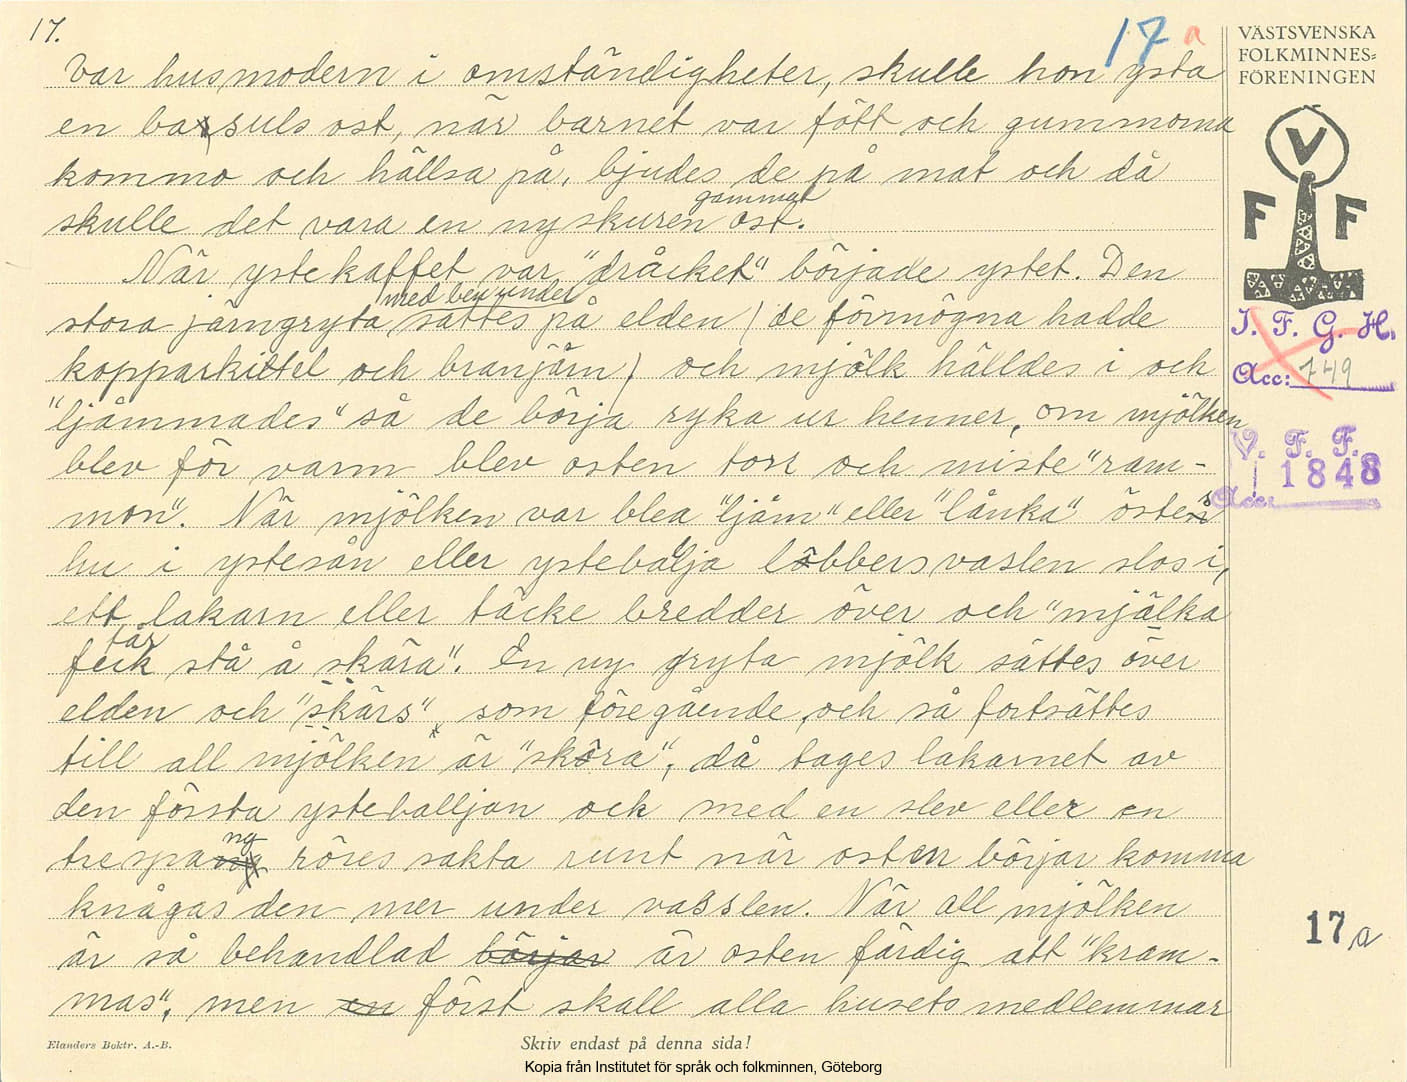 17.
17 a
VÄSTSVENSKA
FOLKMINNES=
FÖRENINGEN
V
F F
I. F. G. H.
Acc: 149
V. F. F.
Acc: 1848
17 a
Var husmodern i omständigheter, skulle hon ysta
en barsuls ost, när barnet var fött och gummorna
kommo och hällsa på, bjudes de på mat och då
skulle det vara en nyskuren gammal ost.
När ystekaffet var "dråcket" började ystet. Den
stora järngryta med ben under sattes på elden (de förmögna hadde
kopparkittel och branjårn) och mjölk hälldes i och
"ljåmmades" så de börja ryka ur henner, om mjölken
blev för varm blev osten torr och miste "ram-
mon". När mjölken var blea "ljåm" eller "lånka" östes
hu i ystesån eller ystebalja löbbersvaslen slos i,
ett lakarn eller täcke bredder över och "mjälka
får stå å skära". En ny gryta mjölk sättes över
elden och "skärs" som föregående, och så fortsättes
till all mjölken är "sköra", då tages lakarnet av
den första ysteballjan ock med en slev eller en
trespang röres sakta runt när osten börjar komma
knågas den mer under vasslen. När all mjölken
är så behandlad börjar är osten färdig att "kram-
mas", men en först skall alla husets medlemmar
Elanders Boktr. A.-B.
Skriv endast på denna sida!
Kopia från Institutet för språk och folkminnen, Göteborg